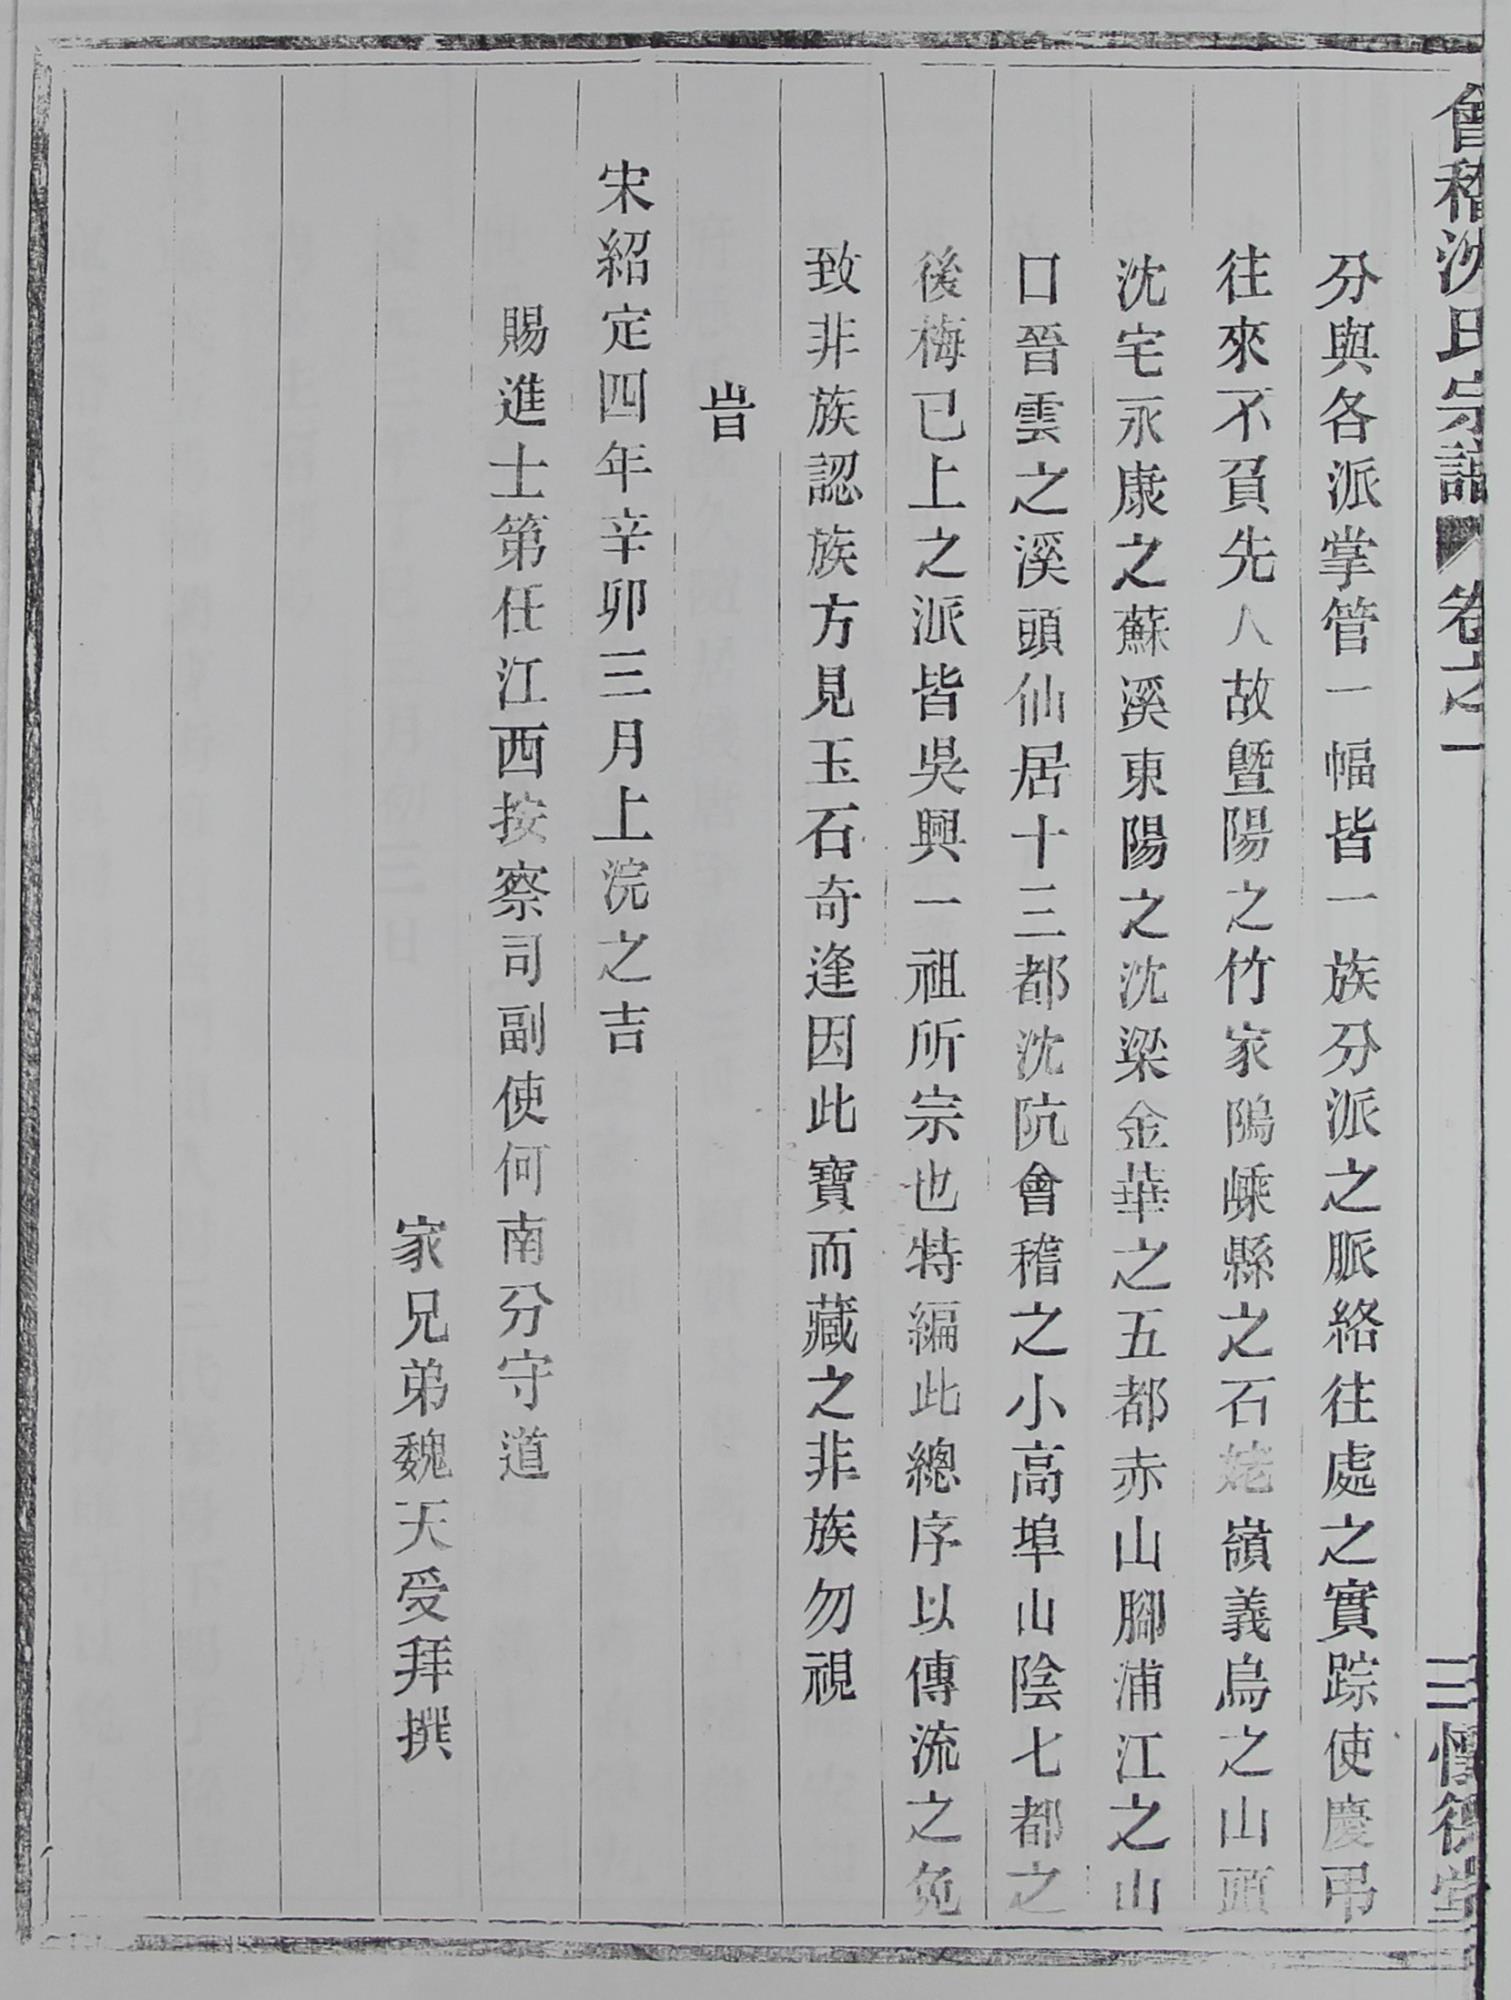 會稽沈氏宗譜 卷之一 三 惇德堂
分與各派掌管一幅皆一族分派之脈絡往處之實踪使慶弔
往來不負先人故暨陽之竹家隖嵊縣之石姥嶺義烏之山頭
沈宅永康之蘇溪東陽之沈梁金華之五都赤山腳浦江之山
口晉雲之溪頭仙居十三都沈阬會稽之小高埠山陰七都之
後梅已上之派皆吳興一祖所宗也特編此總序以傳流之免
致非族認族方見玉石奇逢因此寶而藏之非族勿視
旹
宋紹定四年辛卯三月上浣之吉
賜進士第任江西按察司副使何南分守道
家兄弟魏天受拜撰